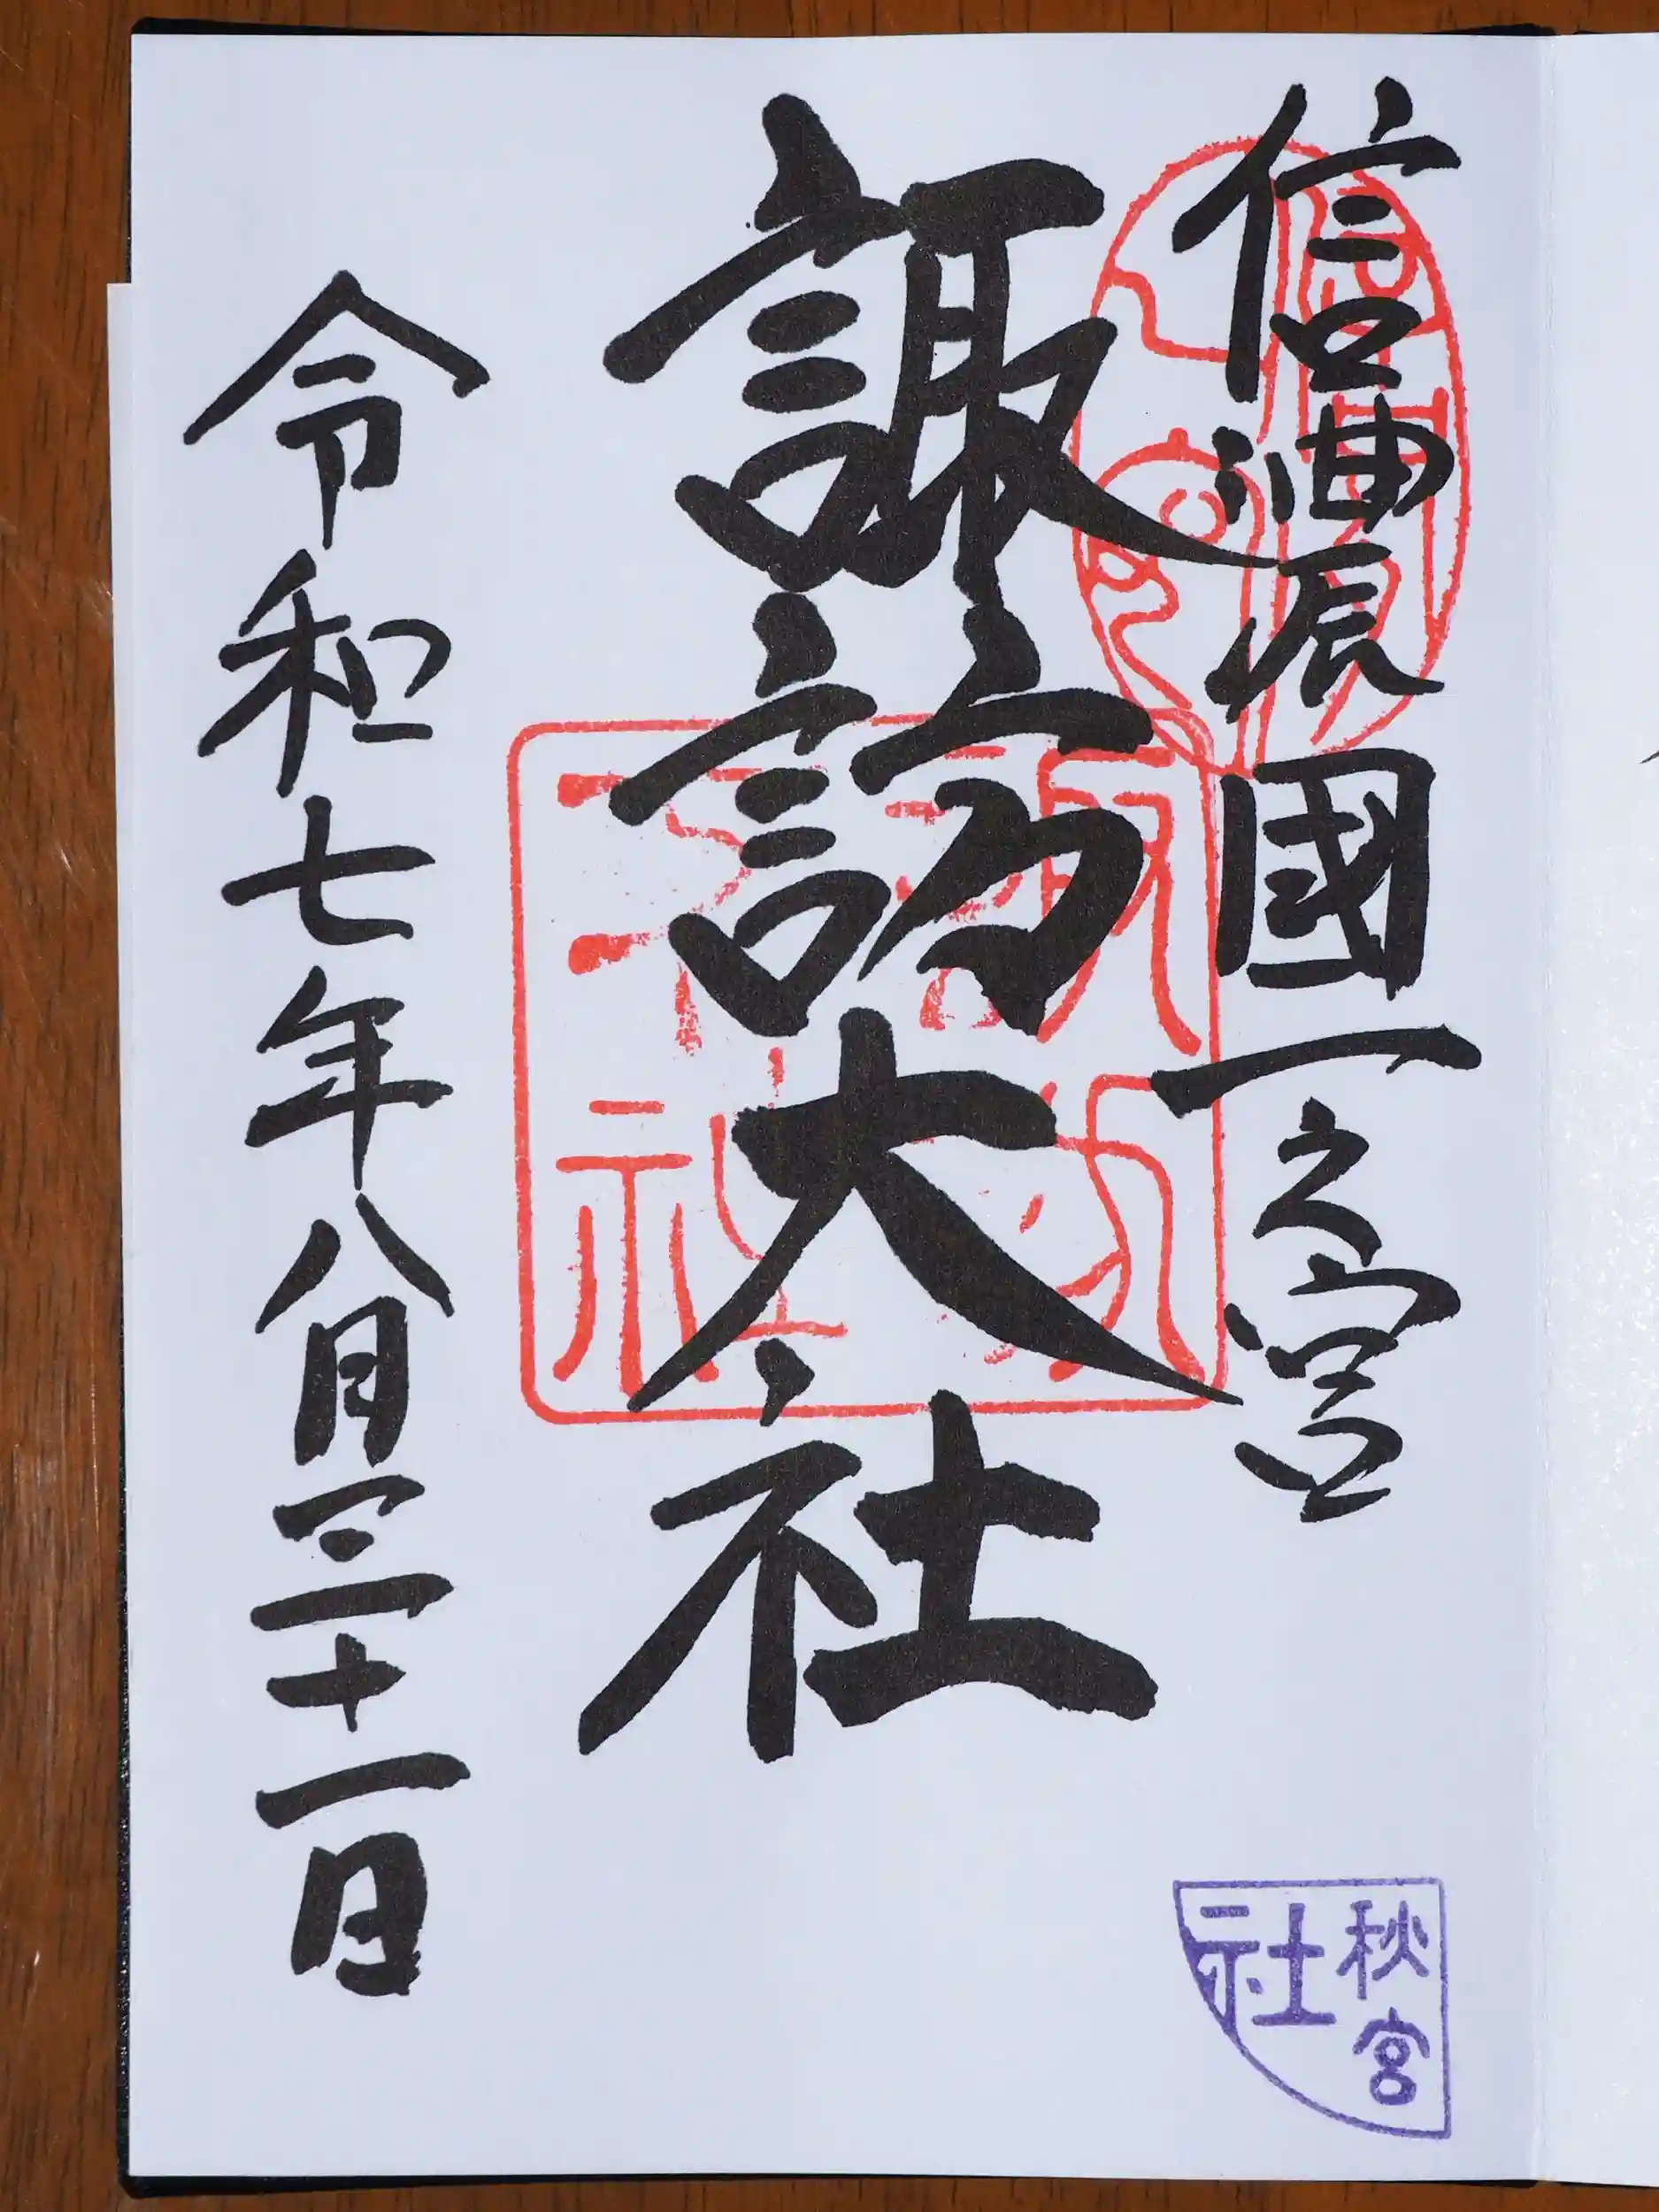 信濃國一之宮
諏訪大社
令和七年八月三十一日
秋宮
社